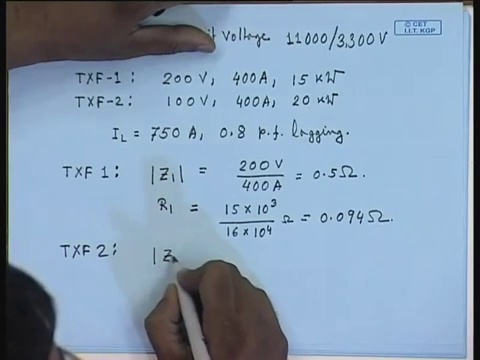 Voltage 11000/3,300V
© CET
I.I.T. KGP
TXF-1: 200 V, 400A, 15 KW
TXF-2: 100V, 400A, 20 KW
I_L = 750 A, 0.8 p.f. lagging.
TXF 1: |Z₁| = 200 V / 400A = 0.5Ω.
R₁ = 15 × 10³ / 16 × 10⁴ Ω = 0.094Ω.
TXF 2: |Z